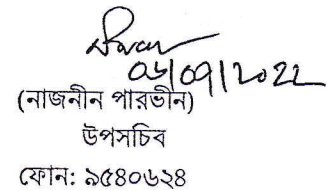 ০৬/০৭/২০২২
(নাজনীন পারভীন)
উপসচিব
ফোন: ৯৫৪০৬২৪